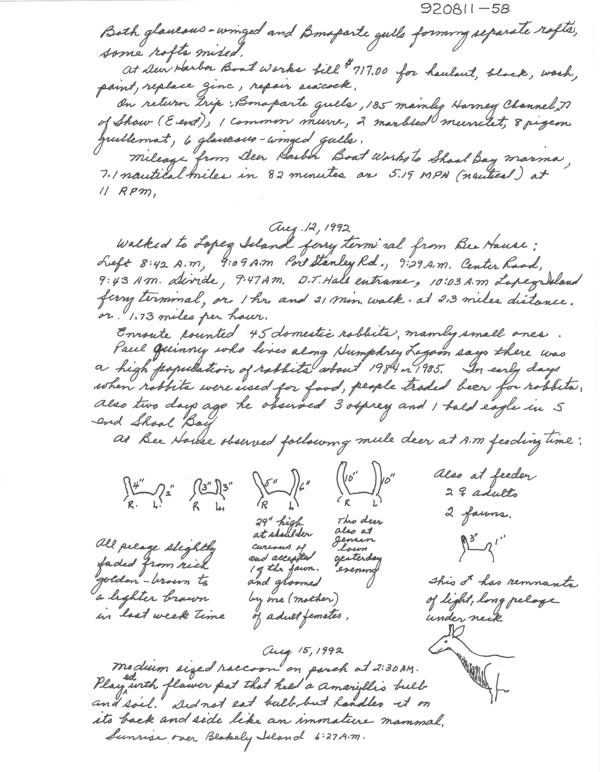 920811-58
Both glaucous-winged and Bonaparte gulls forming separate rafts,
some rafts mixed.
At Deer Harbor Boat Works bill $717.00 for haulout, block, wash,
paint, replace zinc, repair seacock.
On return trip: Bonaparte gulls, 185 mainly Harney Channel, N
of Shaw (E end), 1 common murre, 2 marbled murrelet, 8 pigeon
guillemat, 6 glaucous-winged gulls.
Mileage from Deer Harbor Boat Works to Shoal Bay marina,
7.1 nautical miles in 82 minutes or 5.19 MPH (nautical) at
11 RPM,
Aug. 12, 1992
Walked to Lopez Island ferry terminal from Bee House:
Left 8:42 A.M, 9:09 A.M Port Stanley Rd., 9:29 A.M. Center Road,
9:43 A.M. divide, 9:47 A.M. O.T. Hale entrance, 10:03 A.M Lopez Island
ferry terminal, or 1 hr and 21 min. walk. at 2.3 miles distance.
or 1.73 miles per hour.
Enroute counted 45 domestic rabbits, mainly small ones.
Paul Quinney who lives along Humphrey Lagoon says there was
a high population of rabbits about 1984 or 1985. In early days
when rabbits were used for food, people traded beer for rabbits.
Also two days ago he observed 3 osprey and 1 bald eagle in S
end Shoal Bay
At Bee House observed following mule deer at A.M feeding time:
4" 2" 3" 3" 5" 6" 10" 10"
R. L. R L. R L R L
Also at feeder
2 ♀ adults
2 fawns.
3" 1"
29" high
at shoulder
curious of
and accepted
1 of the fawn.
and groomed
by me (mother)
of adult females.
This deer
also at
Jensen
lawn
yesterday
evening
All pelage slightly
faded from rich
golden-brown to
a lighter brown
in last week time
This ♂ has remnants
of light, long pelage
under neck
Aug 15, 1992
Medium sized raccoon on porch at 2:30 AM.
Played with flower pot that held a Amaryllis bulb
and soil. Did not eat bulb but handles it on
its back and side like an immature mammal.
Sunrise over Blakely Island 6:27 A.M.